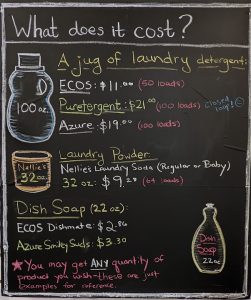 What does it cost?
A jug of laundry detergent:
100 oz.
ECOS: $11.00 (50 loads)
Puretergent: $21.00 (100 loads) Closed loop!
Azure: $19.00 (100 loads)
Laundry Powder:
Nellie's
32 oz.
Nellie's Laundry Soda (Regular or Baby)
32 oz: (64 loads)
Dish Soap (22 oz):
ECOS Dishmate: $2.86
Azure Smiley Suds: $3.30
Dish
Soap
22 oz
You may get ANY quantity of
product you wish-these are just
examples for reference.